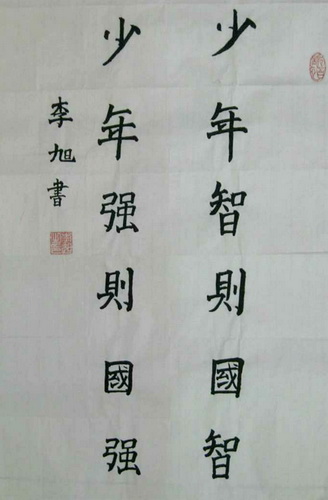 少年智則國智
少年强則國强
李旭書